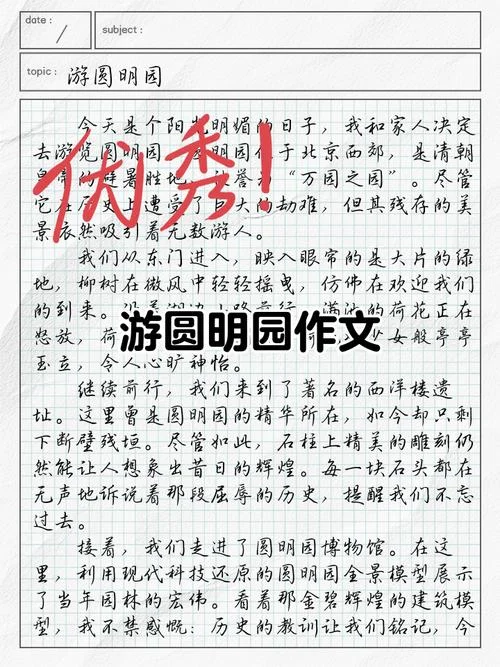 date :
subject :
topic : 游圆明园
今天是个阳光明媚的日子，我和家人决定
去游览圆明园。圆明园位于北京西郊，是清朝
避暑胜地，誉为“万园之园”。尽管
它在历史上遭受了巨大的劫难，但其残存的美
景依然吸引着无数游人。
优秀！
我们从东门进入，映入眼帘的是大片的绿
地，柳树在微风中轻轻摇曳，仿佛在欢迎我们
的到来。满池的荷花正在
怒放，荷少女般亭亭
游圆明园作文
玉立，令人心旷神怡。
继续前行，我们来到了著名的西洋楼遗
址。这里曾是圆明园的精华所在，如今却只剩
下断壁残垣。尽管如此，石柱上精美的雕刻仍
然能让人想象出昔日的辉煌。每一块石头都在
无声地诉说着那段屈辱的历史，提醒我们不忘
过去。
接着，我们走进了圆明园博物馆。在这
里，利用现代科技还原的圆明园全景模型展示
了当年园林的宏伟。看着那金碧辉煌的建筑模
型，我不禁感慨：历史的教训让我们铭记，今